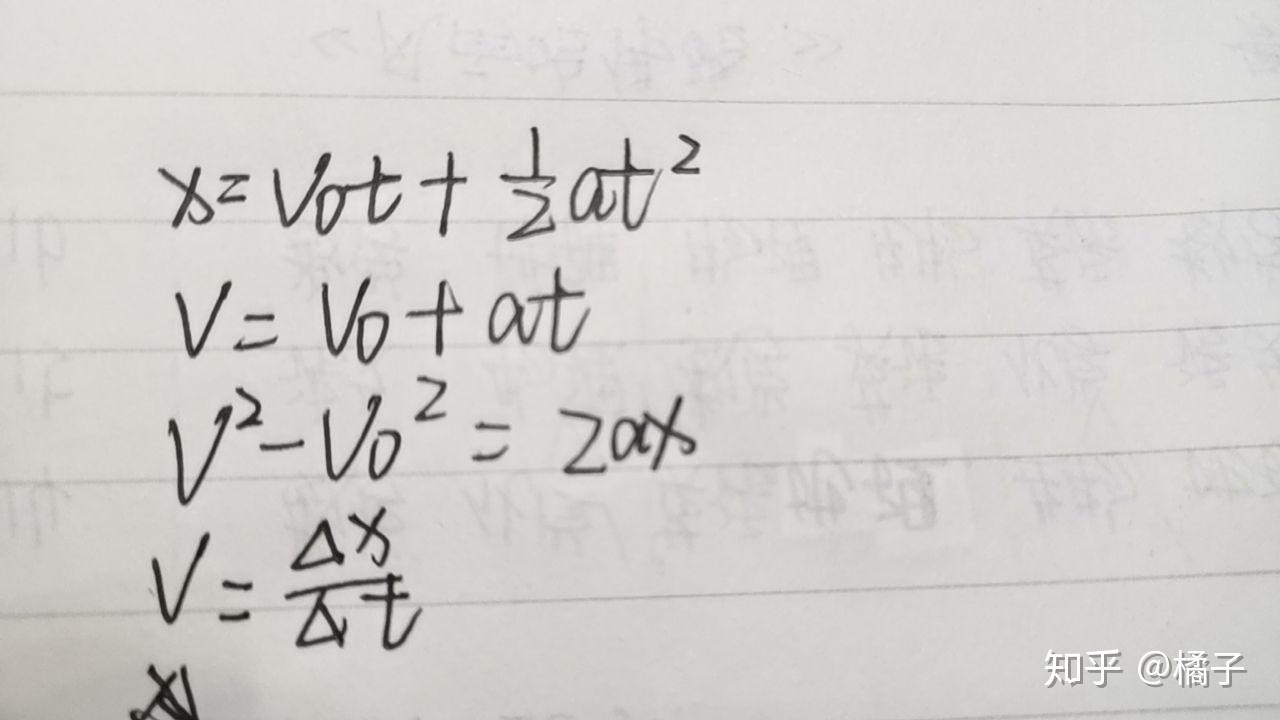 x=v₀t+½at²
V=V₀+at
V²-V₀²=2ax
V=Δx/Δt
知乎 @橘子